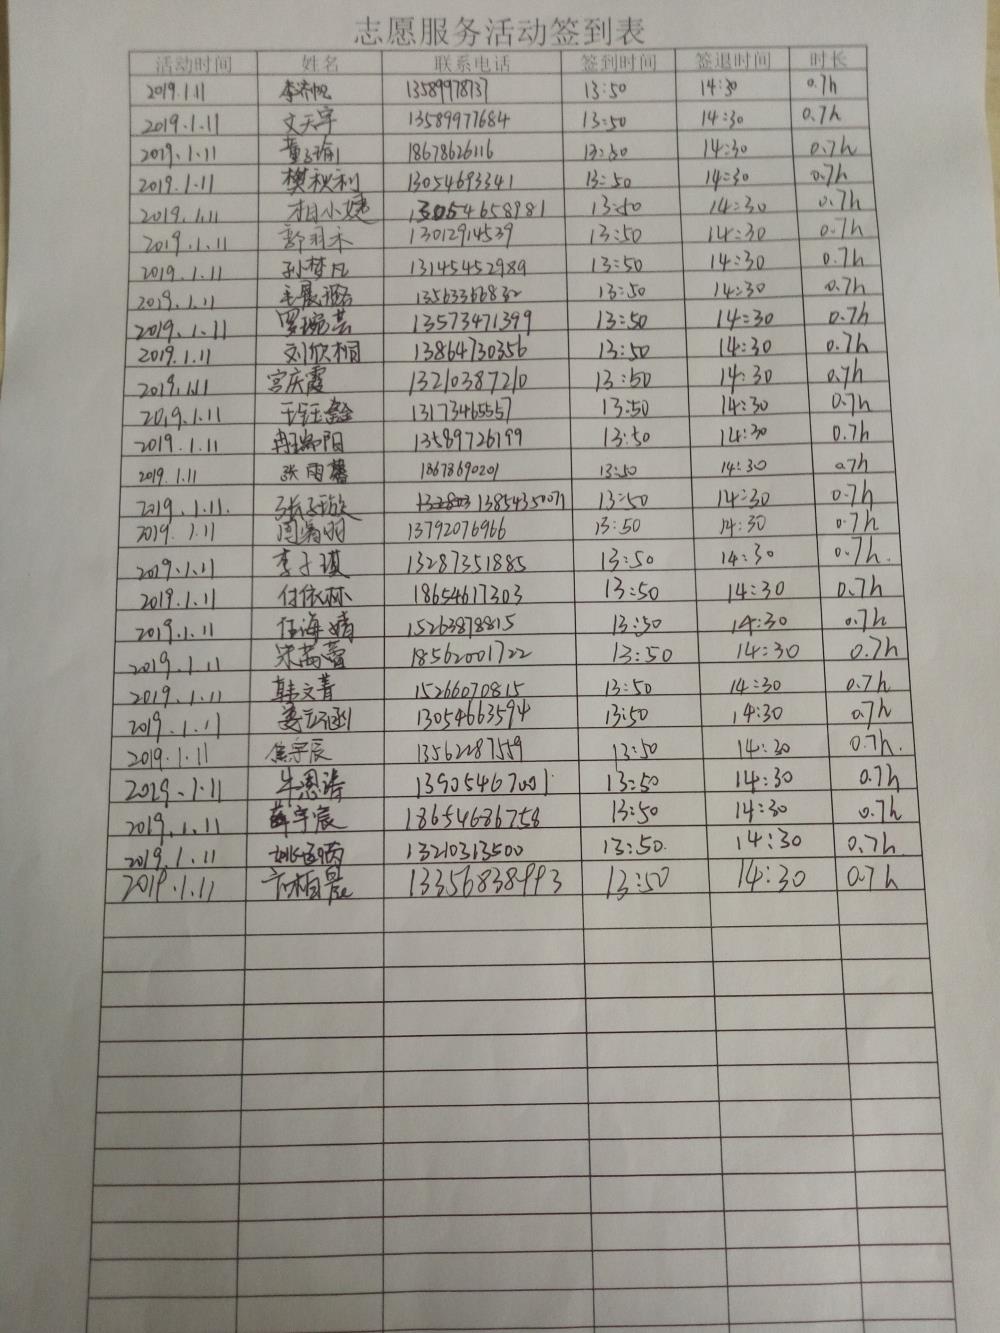 志愿服务活动签到表
活动时间 姓名 联系电话 签到时间 签退时间 时长
2019.1.11 李济帆 13589978737 13:50 14:30 0.7h
2019.1.11 文天宇 13589977684 13:50 14:30 0.7h
2019.1.11 18678626116 13:50 14:30 0.7h
2019.1.11 樊秋利 13054693341 13:50 14:30 0.7h
2019.1.11 相小婕 13054658981 13:50 14:30 0.7h
2019.1.11 郭羽禾 13012914539 13:50 14:30 0.7h
2019.1.11 孙梦凡 13145452989 13:50 14:30 0.7h
2019.1.11 13563366832 13:50 14:30 0.7h
2019.1.11 罗琬芸 13573471399 13:50 14:30 0.7h
2019.1.11 刘欣桐 13864730356 13:50 14:30 0.7h
2019.1.11 宫庆霞 13210387210 13:50 14:30 0.7h
2019.1.11 王钰鑫 13173465557 13:50 14:30 0.7h
2019.1.11 冉瑞阳 13589726199 13:50 14:30 0.7h
2019.1.11 张雨馨 18678690201 13:50 14:30 0.7h
2019.1.11. 张子璇 13854350071 13:50 14:30 0.7h
2019.1.11 13792076966 13:50 14:30 0.7h
2019.1.11 李子琪 13287351885 13:50 14:30 0.7h.
2019.1.11 付依林 18654617303 13:50 14:30 0.7h
2019.1.11 任海婧 15263878815 13:50 14:30 0.7h
2019.1.11 宋蕾 18562001722 13:50 14:30 0.7h
2019.1.11 韩文菁 15266070815 13:50 14:30 0.7h
2019.1.11 姜云涵 13054663594 13:50 14:30 0.7h
2019.1.11 焦宇辰 13562287559 13:50 14:30 0.7h.
2019.1.11 牛恩浩 13905467001 13:50 14:30 0.7h
2019.1.11 薛宇宸 18654686758 13:50 14:30 0.7h
2019.1.11 13210313500 13:50. 14:30 0.7h
2019.1.11 13356838993 13:50 14:30 0.7h